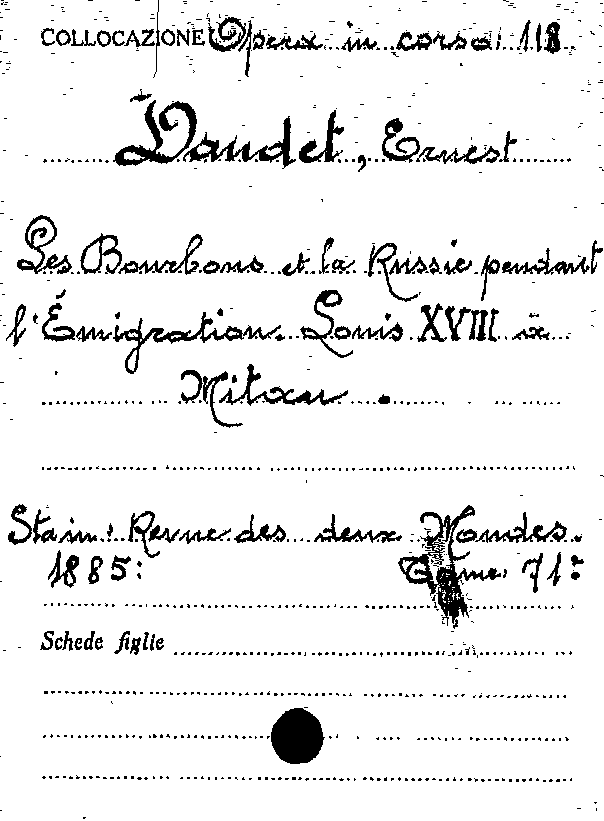 COLLOCAZIONE Opera in corso 118
Daudet, Ernest
Les Bourbons et la Russie pendant
l'Émigration. Louis XVIII à
Mitau.
Sta in: Revue des deux Mondes.
1885: Tome 71º
Schede figlie